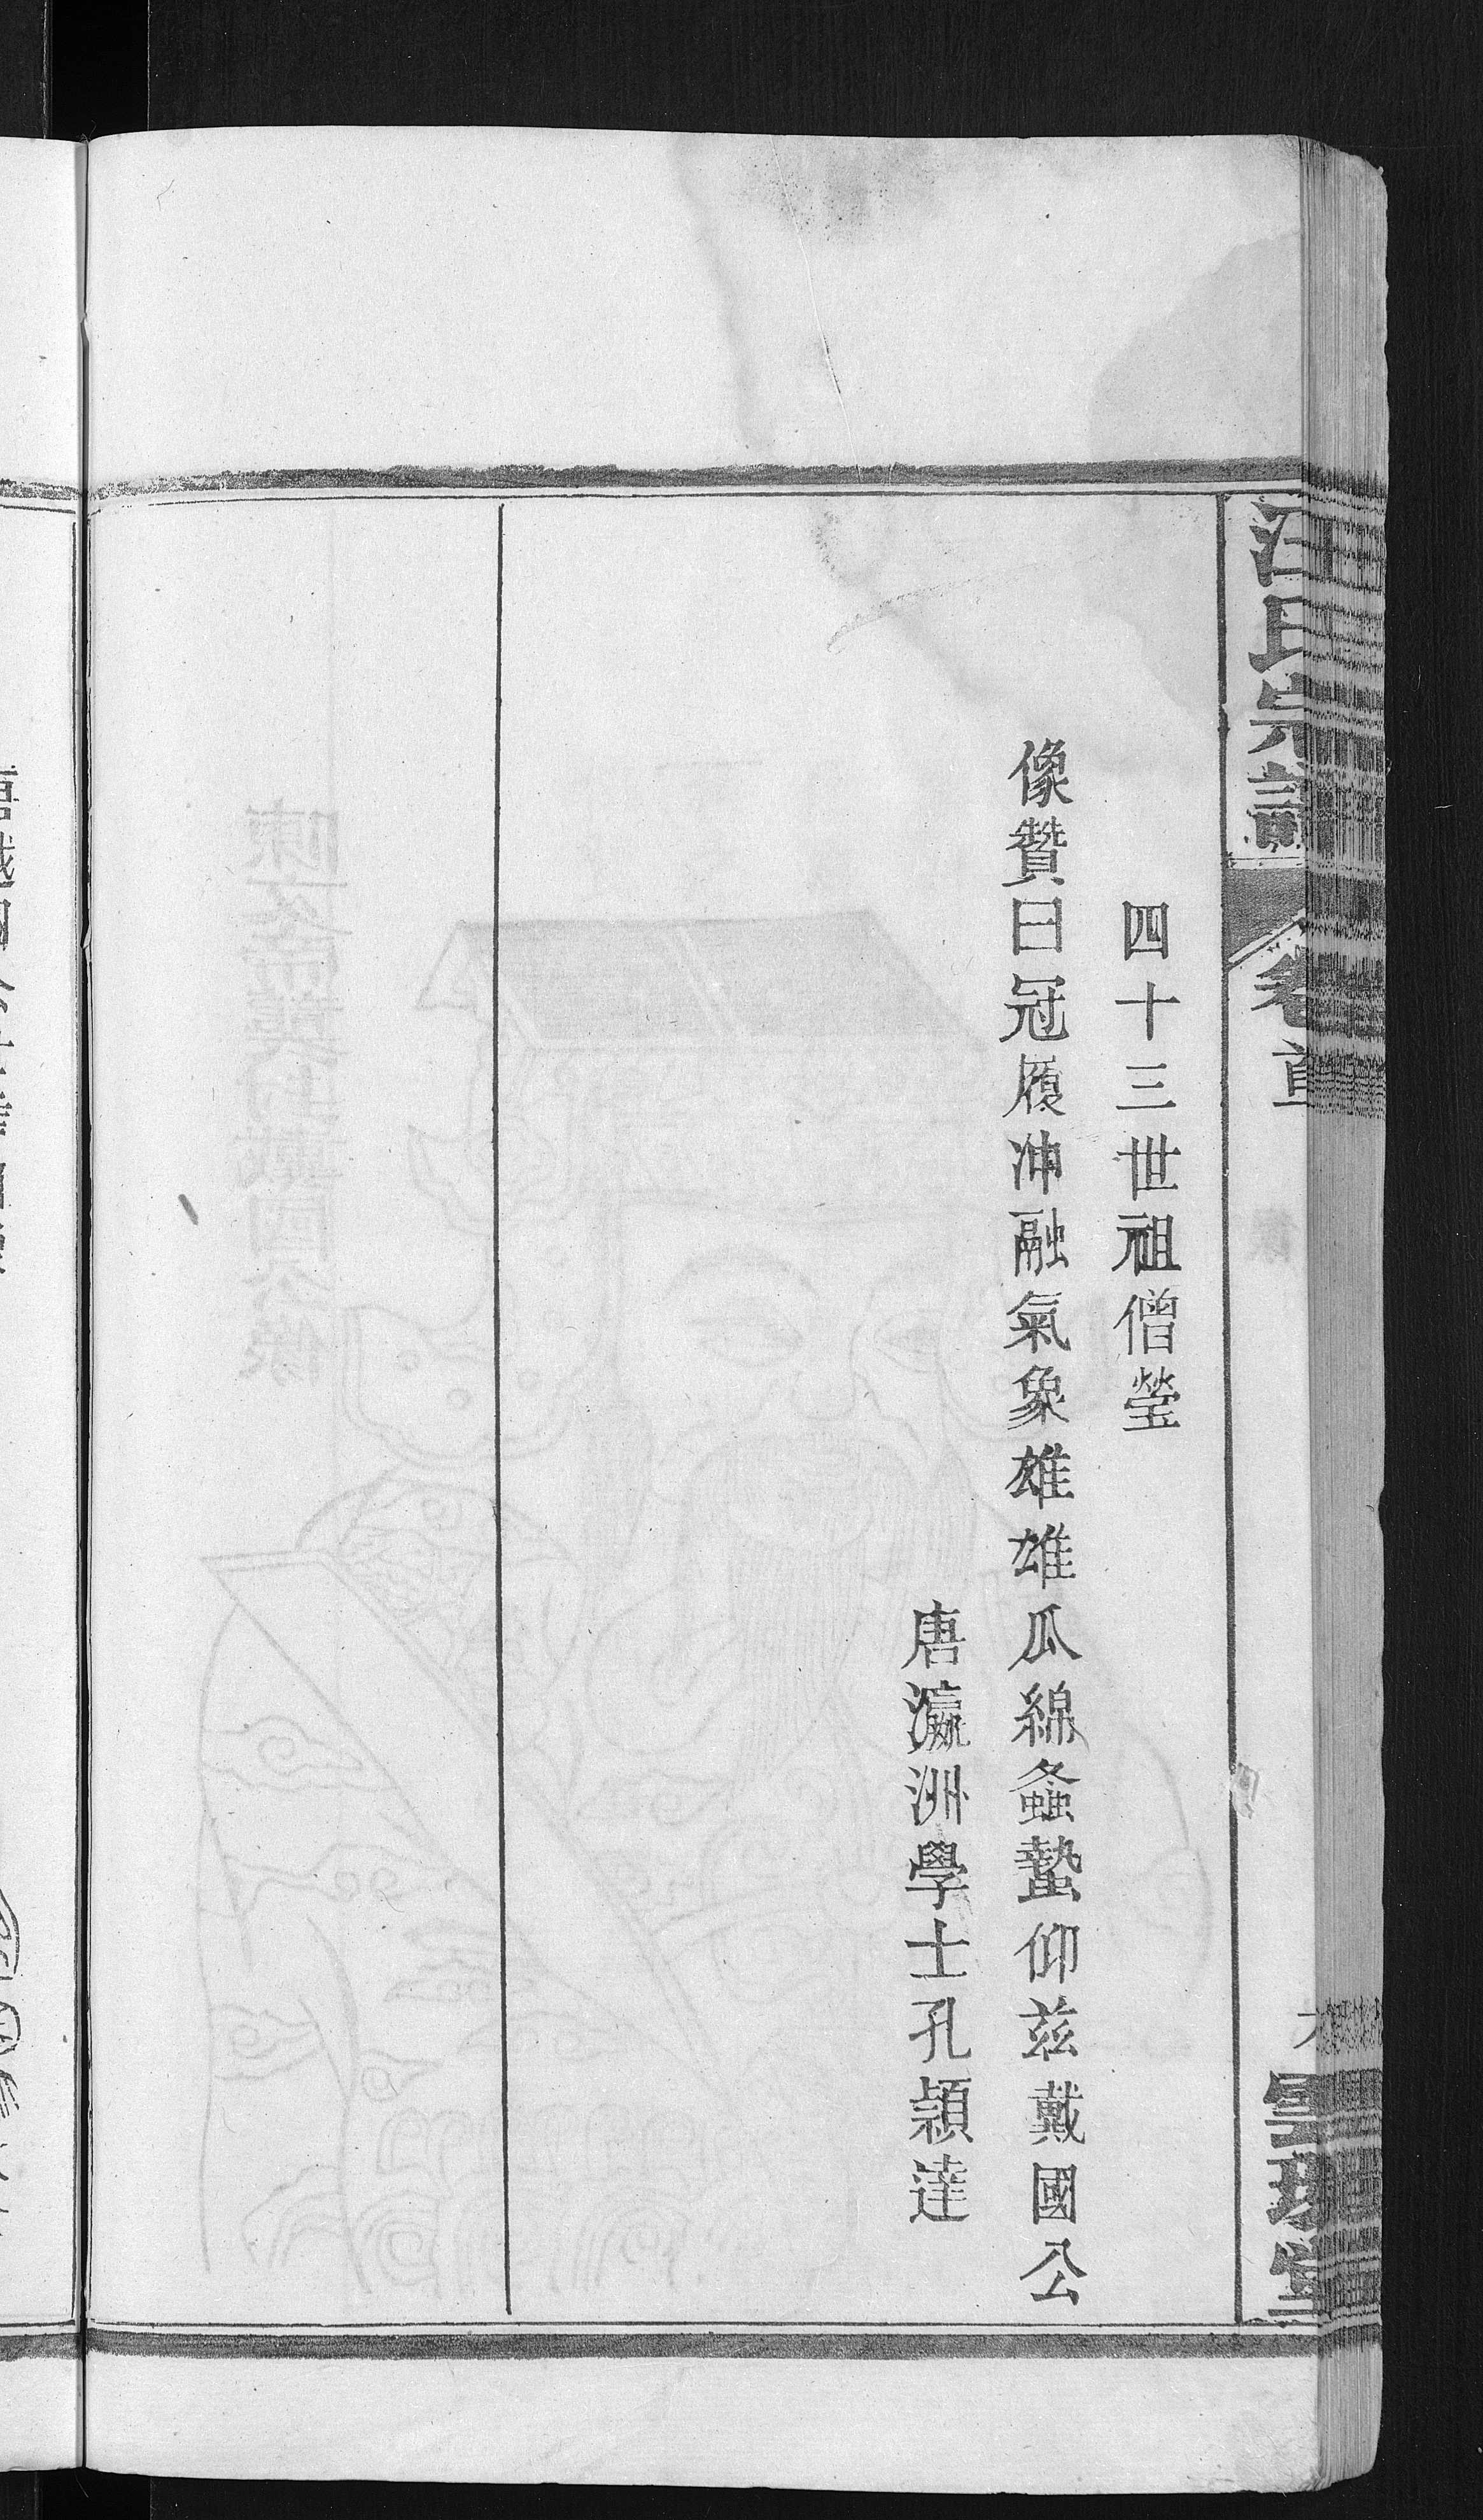 汪氏宗譜
卷首
四十三世祖僧瑩
像贊曰冠履冲融氣象雄雄瓜綿螽蟄仰茲戴國公
唐瀛洲學士孔穎達